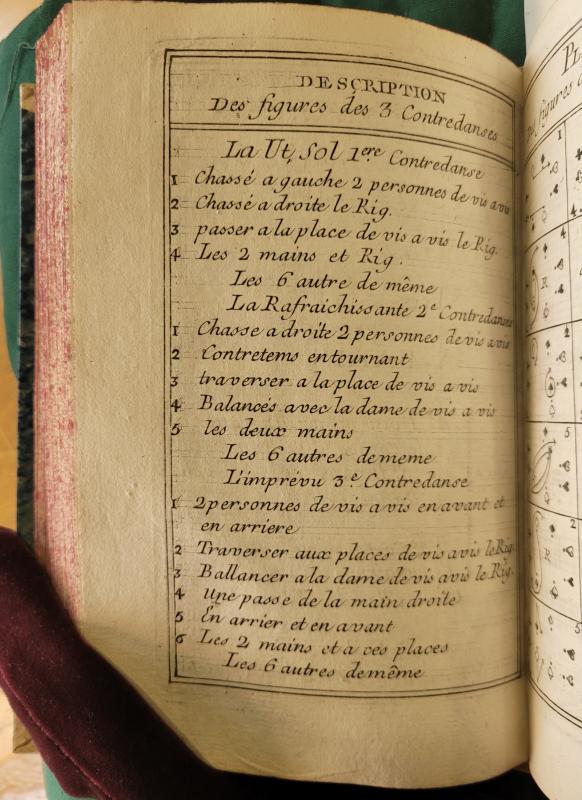 DESCRIPTION
Des figures des 3 Contredanses
La Ut, Sol 1ere Contredanse
1 Chassé a gauche 2 personnes de vis a vis
2 Chassé a droite le Rig.
3 passer a la place de vis a vis le Rig.
4 Les 2 mains et Rig.
Les 6 autre de même
La Rafraichissante 2e Contredanse
1 Chasse a droite 2 personnes de vis a vis
2 Contretems en tournant
3 traverser a la place de vis a vis
4 Balancés avec la dame de vis a vis
5 les deux mains
Les 6 autres de meme
L'imprévu 3e Contredanse
1 2 personnes de vis a vis en avant et
en arriere
2 Traverser aux places de vis a vis le Rig.
3 Ballancer a la dame de vis a vis le Rig.
4 Une passe de la main droite
5 En arrier et en avant
6 Les 2 mains et a ces places
Les 6 autres de même